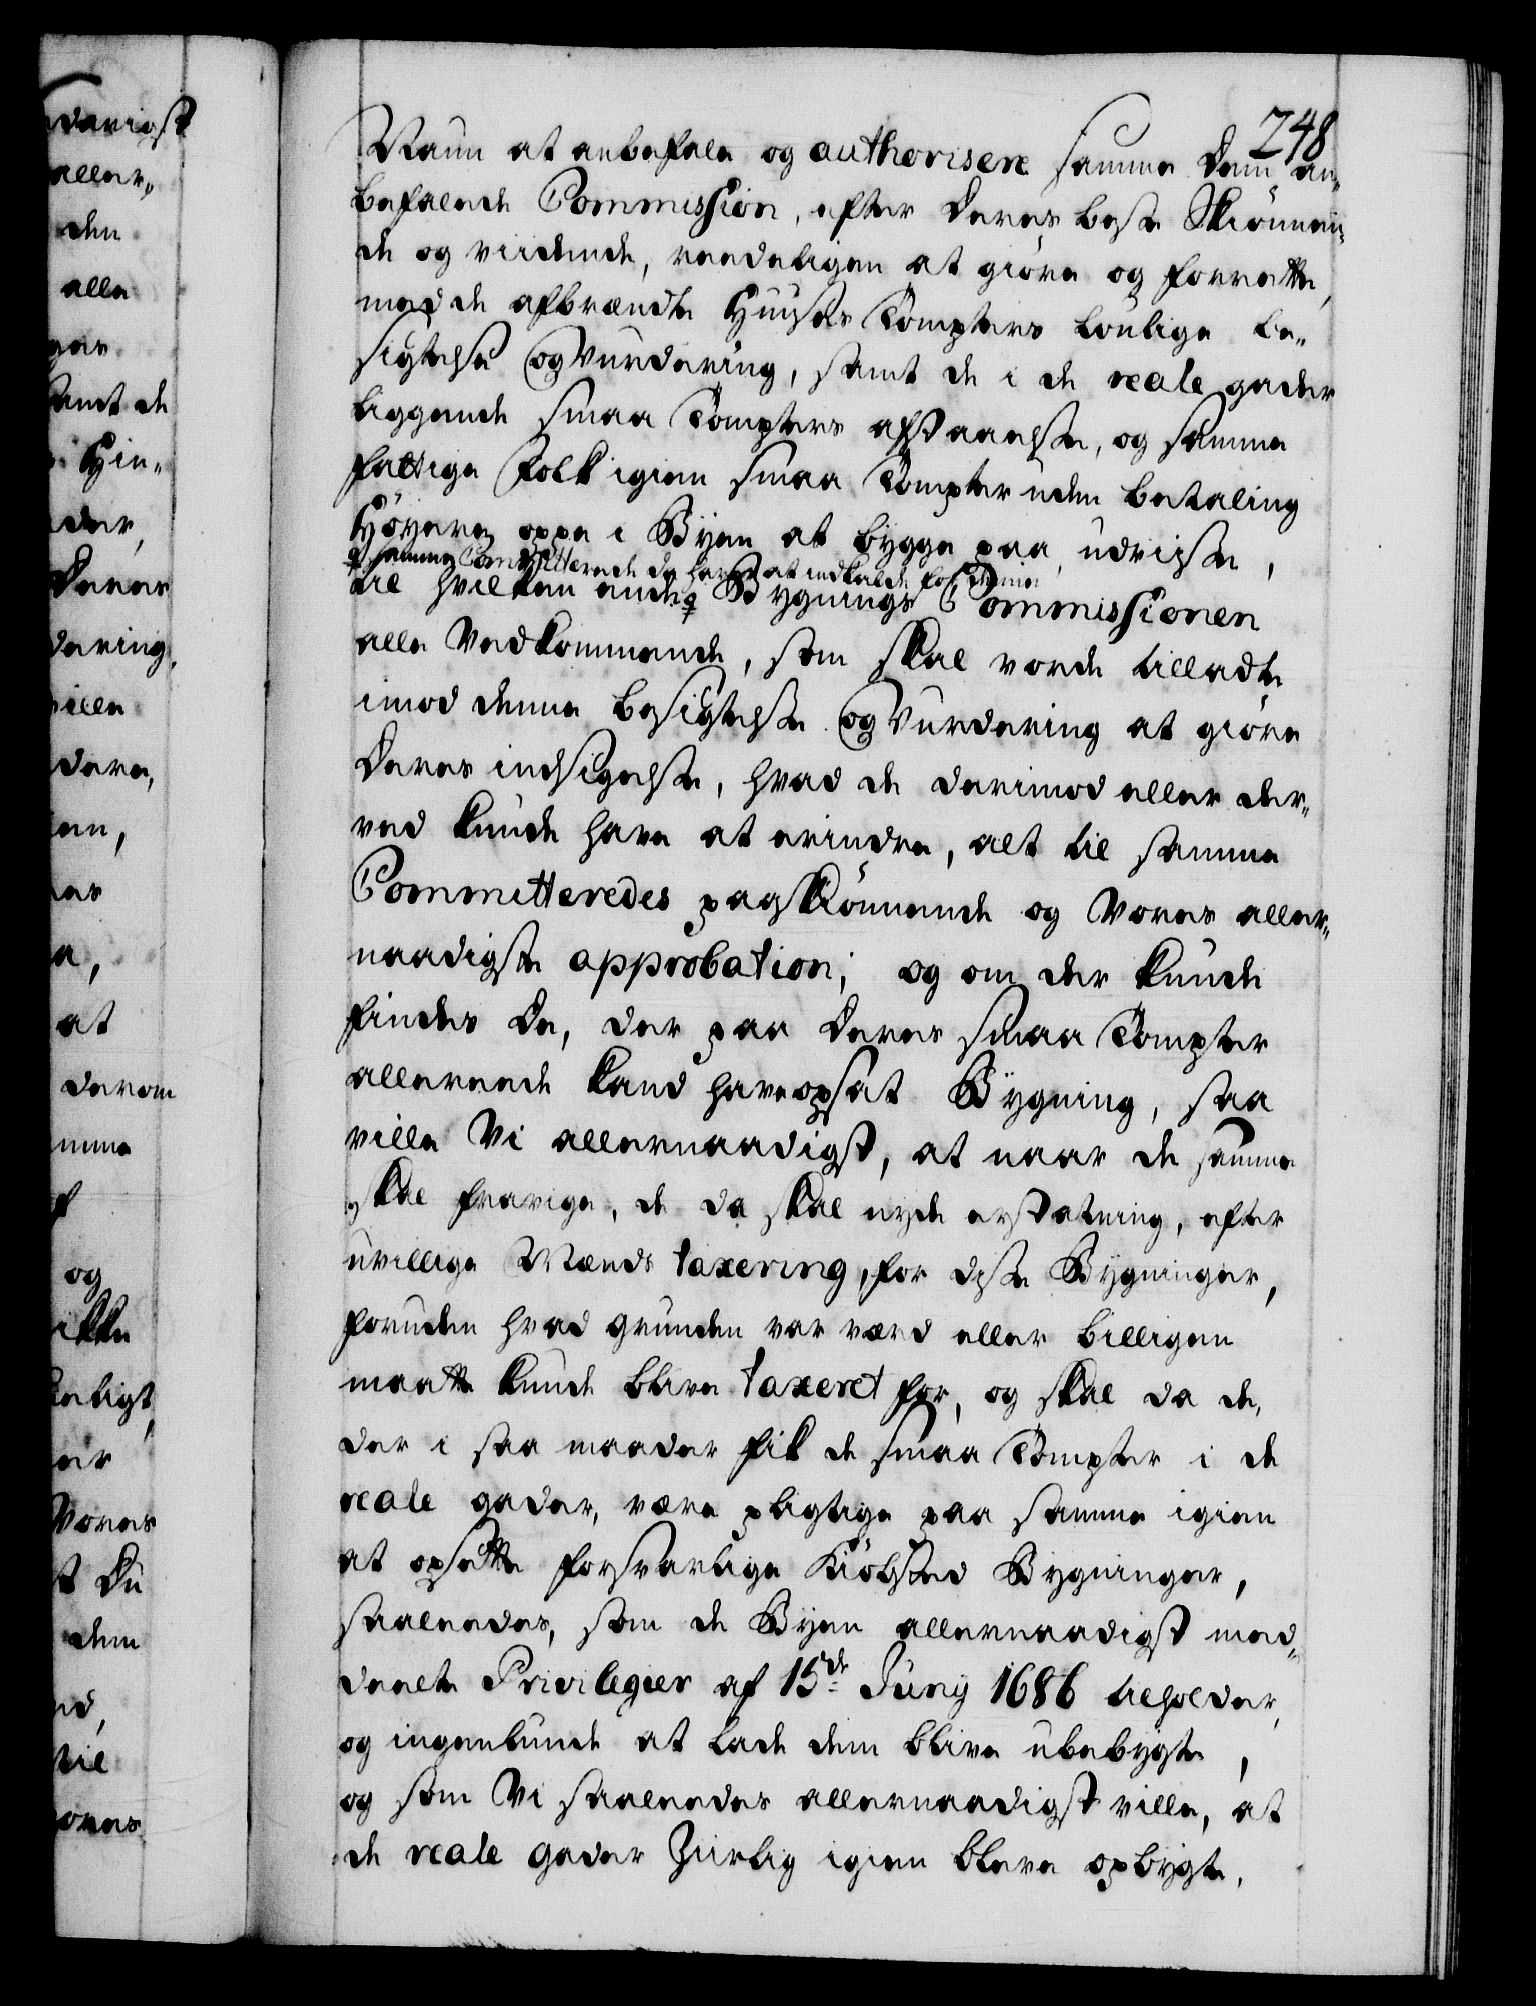 248
Naun at anbefale og authorisere samme Dem an-
befalede Commission, efter Deres beste Skiönnen-
de og viidende, reedeligen at giöre og forrette,
med de afbrændte Huuses Tompters lovlige be-
sigtelse og Vurdering, samt de i de reale gader
liggende smaa Tompters afstaaelse, og samme
fattige Folk igien smaa Tompter uden betaling
Höyere oppe i Byen at bygge paa, udviise,
♀ samme Committerede da hafver at indkalde for denne
til hvilken ende ♀ Bygnings Commissionen
alle Vedkommende, som skal vorde tilladt,
imod denne besigtelse og Vurdering at giöre
Deres indsigelse, hvad de derimod eller der-
ved kunde have at erindre, alt til samme
Committeredes paaskiönnende og Vores aller-
naadigste approbation; og om der kunde
findes De, der paa Deres smaa Tompter
allereede kand have opsat Bygning, saa
ville Vi allernaadigst, at naar de samme
skal fravige, de da skal nyde erstatning, efter
uvillige Mænds taxering, for disse Bygninger,
foruden hvad grunden var værd eller billigen
maatte kunde blive taxeret for, og skal da de,
der i saa maader fik de smaa Tompter i de
reale gader, være pligtige paa samme igien
at opsette forsvarlige Kiöbsted Bygninger,
saaleedes, som de Byen allernaadigst med-
deelte Privilegier af 15de Juny 1686 tilholder,
og ingenlunde at lade dem blive ubebygte,
og som Vi saaleedes allernaadigst ville, at
de reale gader Ziirlig igien bleve opbygte,